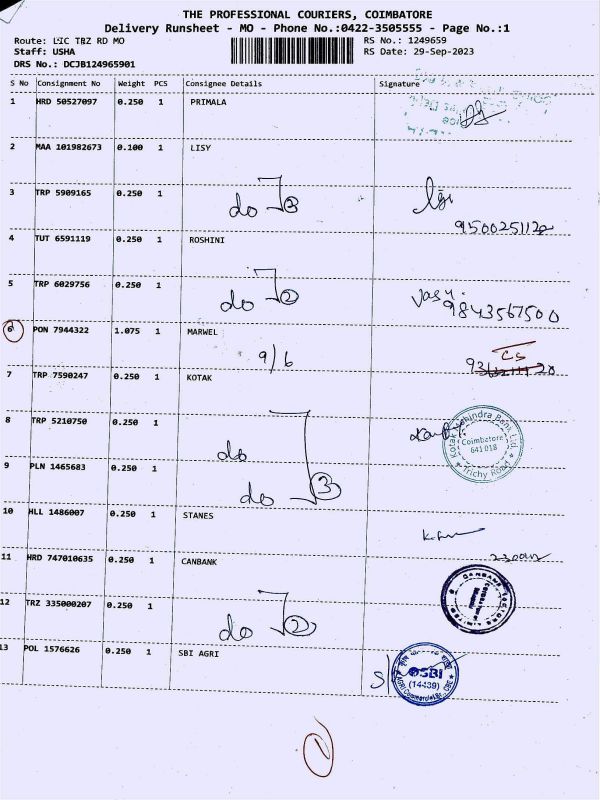 THE PROFESSIONAL COURIERS, COIMBATORE
Delivery Runsheet - MO - Phone No.:0422-3505555 - Page No.:1
Route: LIC TBZ RD MO RS No.: 1249659
Staff: USHA RS Date: 29-Sep-2023
DRS No.: DCJB124965901
S No Consignment No Weight PCS Consignee Details Signature
1 HRD 50527097 0.250 1 PRIMALA
2 MAA 101982673 0.100 1 LISY
3 TRP 5909165 0.250 1 do 2
9500251122
4 TUT 6591119 0.250 1 ROSHINI
5 TRP 6029756 0.250 1 do 2
9843567500
6 PON 7944322 1.075 1 MARWEL
9/6 CS
7 TRP 7590247 0.250 1 KOTAK
8 TRP 5210750 0.250 1 do
Kotak Mahindra Bank Ltd.
Coimbatore
641 018
Trichy Road
9 PLN 1465683 0.250 1 do 3
10 HLL 1486007 0.250 1 STANES
11 HRD 747010635 0.250 1 CANBANK
12 TRZ 335000207 0.250 1 do 2
13 POL 1576626 0.250 1 SBI AGRI
SBI
(14439)